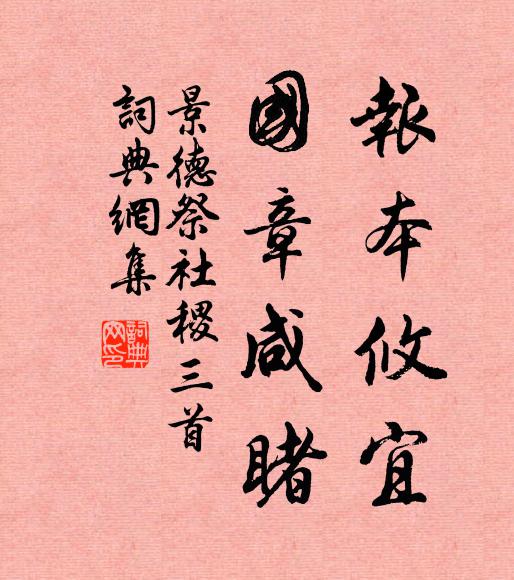 報本攸宜
國章咸睹
景德祭社稷三首
詞典網集
詞典網印